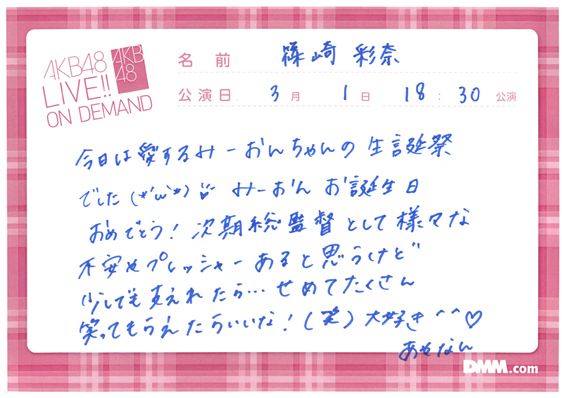 AKB48
LIVE!!
ON DEMAND
AKB
48
名前 篠崎 彩奈
公演日 3月 1日 18:30 公演
今日は愛するみーおんちゃんの生誕祭
でした(*'ω'*) みーおん お誕生日
おめでとう! 次期総監督として様々な
不安やプレッシャーあると思うけど
少しでも支えれたら… せめてたくさん
笑ってもらえたらいいな! (笑) 大好き^^♡
あやなん
DMM.com